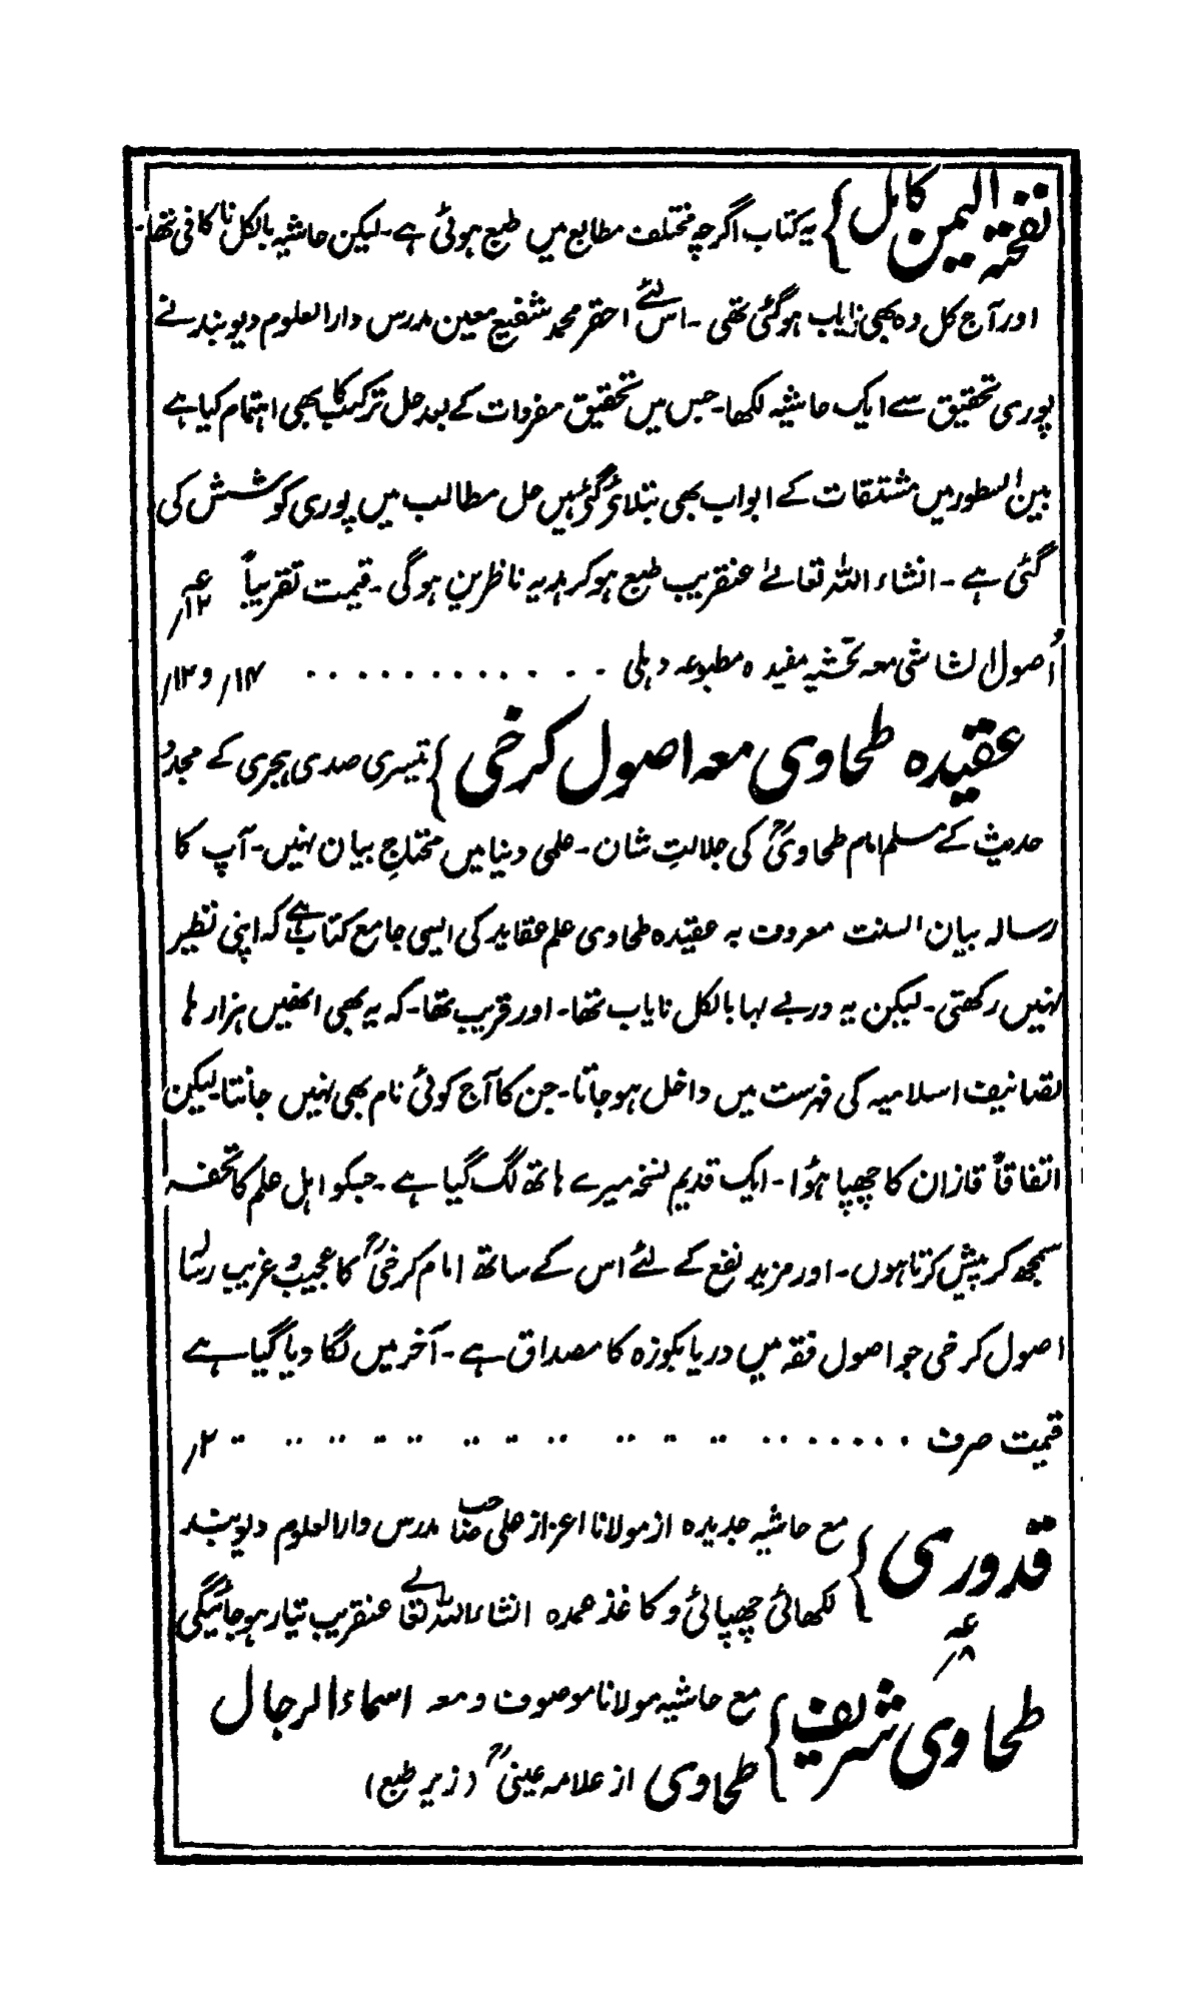 نفحۃ الیمن کامل } یہ کتاب اگرچہ مختلف مطابع میں طبع ہوئی ہے۔ لیکن حاشیہ بالکل ناکافی تھا۔
اور آج کل وہ بھی نایاب ہوگئی تھی ۔ اس لئے احقر محمد شفیع معین مدرس دارالعلوم دیوبند نے
پوری تحقیق سے ایک حاشیہ لکھا۔ جس میں تحقیق مفردات کے بعد حل ترکیب کا بھی اہتمام کیا ہے
بین السطور میں مشتقات کے ابواب بھی بتلائے گئے ہیں حل مطالب میں پوری کوشش کی
گئی ہے ۔ انشاء اللہ تعالےٰ عنقریب طبع ہوکر ہدیہ ناظرین ہوگی ۔ قیمت تقریباً ۱۲؍
اُصول الشاشی معہ تحشیہ مفیدہ مطبوعہ دہلی . . . . . . . . . . . . ۱۴؍ و ۱۲؍
عقیدہ طحاوی معہ اصول کرخی } تیسری صدی ہجری کے مجدد
حدیث کے مسلم امام طحاویؒ کی جلالتِ شان ۔ علمی دنیا میں محتاجِ بیان نہیں ۔ آپ کا
رسالہ بیان السنت معروف بہ عقیدہ طحاوی علم عقاید کی ایسی جامع کتاب ہے کہ اپنی نظیر
نہیں رکھتی ۔ لیکن یہ در بے بہا بالکل نایاب تھا ۔ اور قریب تھا ۔ کہ یہ بھی انھیں ہزارہا
تصانیف اسلامیہ کی فہرست میں داخل ہوجاتا ۔ جن کا آج کوئی نام بھی نہیں جانتا ۔ لیکن
اتفاقاً قازان کا چھپا ہؤا ۔ ایک قدیم نسخہ میرے ہاتھ لگ گیا ہے ۔ جسکو اہل علم کا تحفہ
سمجھ کر پیش کرتا ہوں ۔ اور مزید نفع کے لئے اس کے ساتھ امام کرخیؒ کا عجیب و غریب رسالہ
اصول کرخی جو اصول فقہ میں دریا بکوزہ کا مصداق ہے ۔ آخر میں لگا دیا گیا ہے
قیمت صرف . . . . . . . .. .. .. .. .. .. .. .. .. .. ۲؍
قدوری } مع حاشیہ جدیدہ از مولانا اعزاز علی صاحب مدرس دارالعلوم دیوبند
لکھائی چھپائی و کاغذ عمدہ انشاء اللہ تعالےٰ عنقریب تیار ہوجائیگی
۸؍
طحاوی شریف } مع حاشیہ مولانا موصوف و معہ اسماء الرجال
طحاوی از علامہ عینیؒ (زیر طبع)